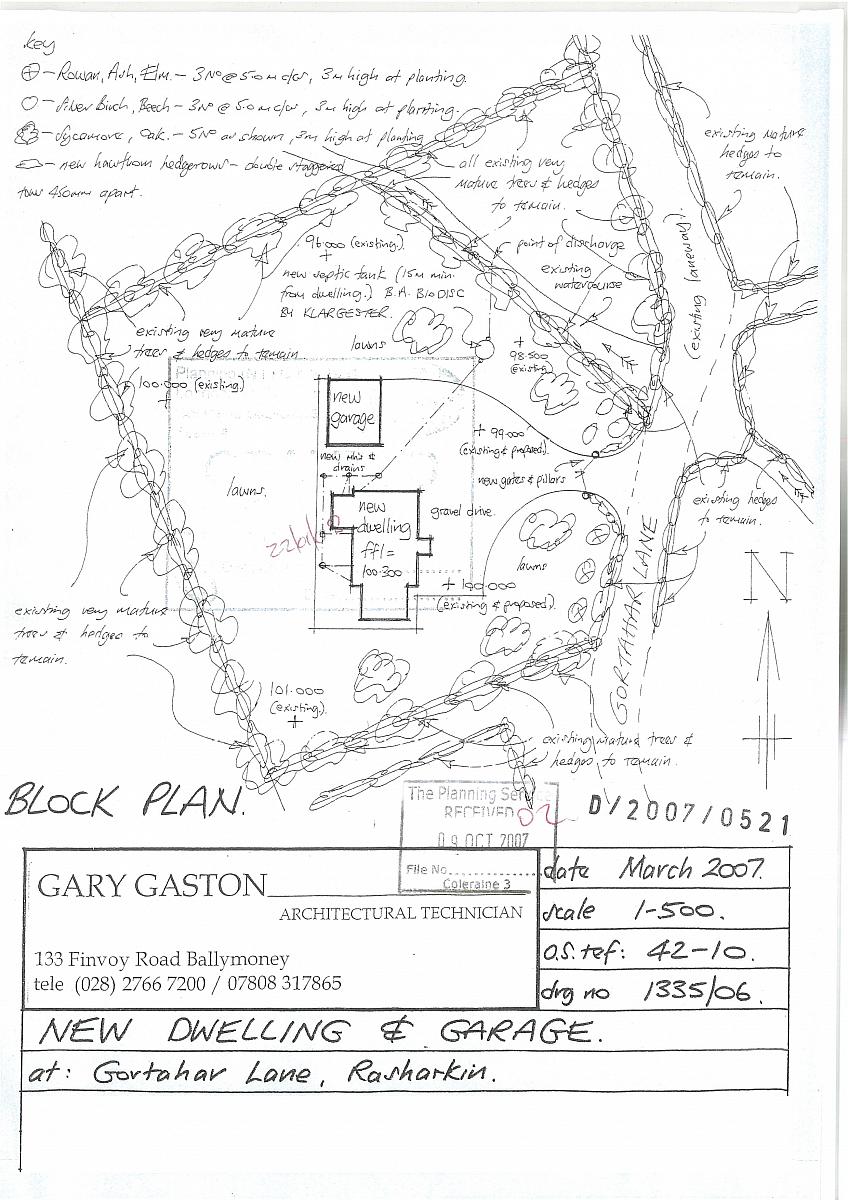 key
Rowan, Ash, Elm. - 3No @ 5.0m c/c, 3m high at planting.
Silver Birch, Beech - 3No @ 5.0m c/c, 3m high at planting.
Sycamore, Oak. - 5No as shown, 3m high at planting
new hawthorn hedgerows - double staggered
rows 450mm apart.
existing mature
hedges to
remain.
all existing very
mature trees & hedges
to remain.
point of discharge
existing
watercourse
(existing laneway).
96.000 (existing).
new septic tank (15m min.
from dwelling.) B.A. BIODISC
BY KLARGESTER.
existing very mature
trees & hedges to remain.
lawns
98.500
(existing)
100.000 (existing)
new
garage
99.000
(existing & proposed).
new mh's &
drains
new gates & pillars
lawns.
new
dwelling
ffl =
100.300
gravel drive.
existing hedges
to remain.
lawns
100.000
(existing & proposed).
GORTAHAR LANE
N
existing very mature
trees & hedges to
remain.
101.000
(existing).
existing mature trees &
hedges to remain.
BLOCK PLAN.
The Planning Service
RECEIVED 02
09 OCT 2007
File No
Coleraine 3
D/2007/0521
GARY GASTON
ARCHITECTURAL TECHNICIAN
133 Finvoy Road Ballymoney
tele (028) 2766 7200 / 07808 317865
date March 2007.
scale 1-500.
O.S. ref: 42-10.
drg no 1335/06.
NEW DWELLING & GARAGE.
at: Gortahar Lane, Rasharkin.